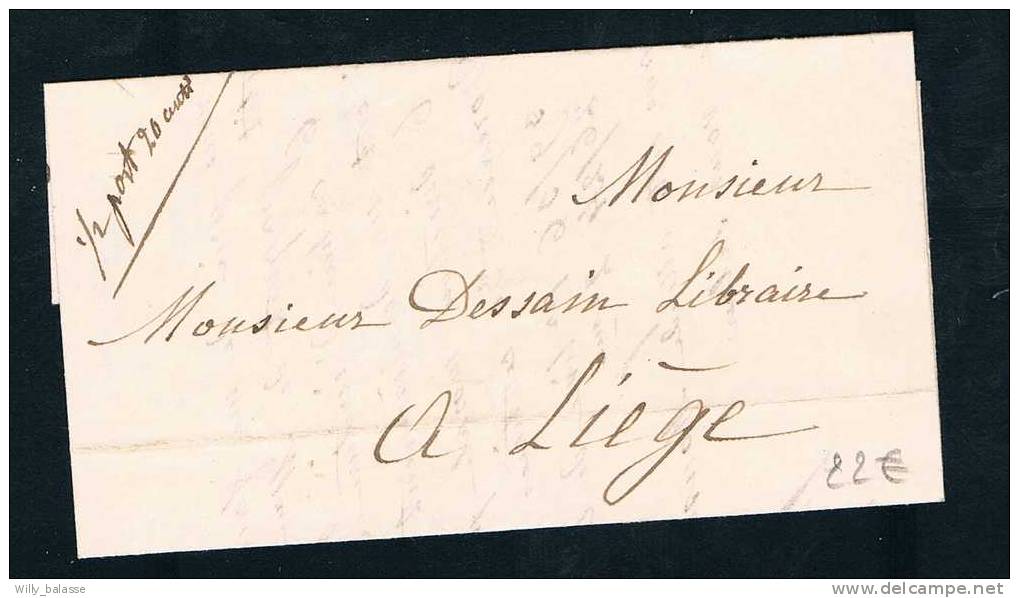 1/2 port 20 cents
Monsieur
Monsieur Dessain Libraire
A Liège
22€
willy_balasse
delcampe.net